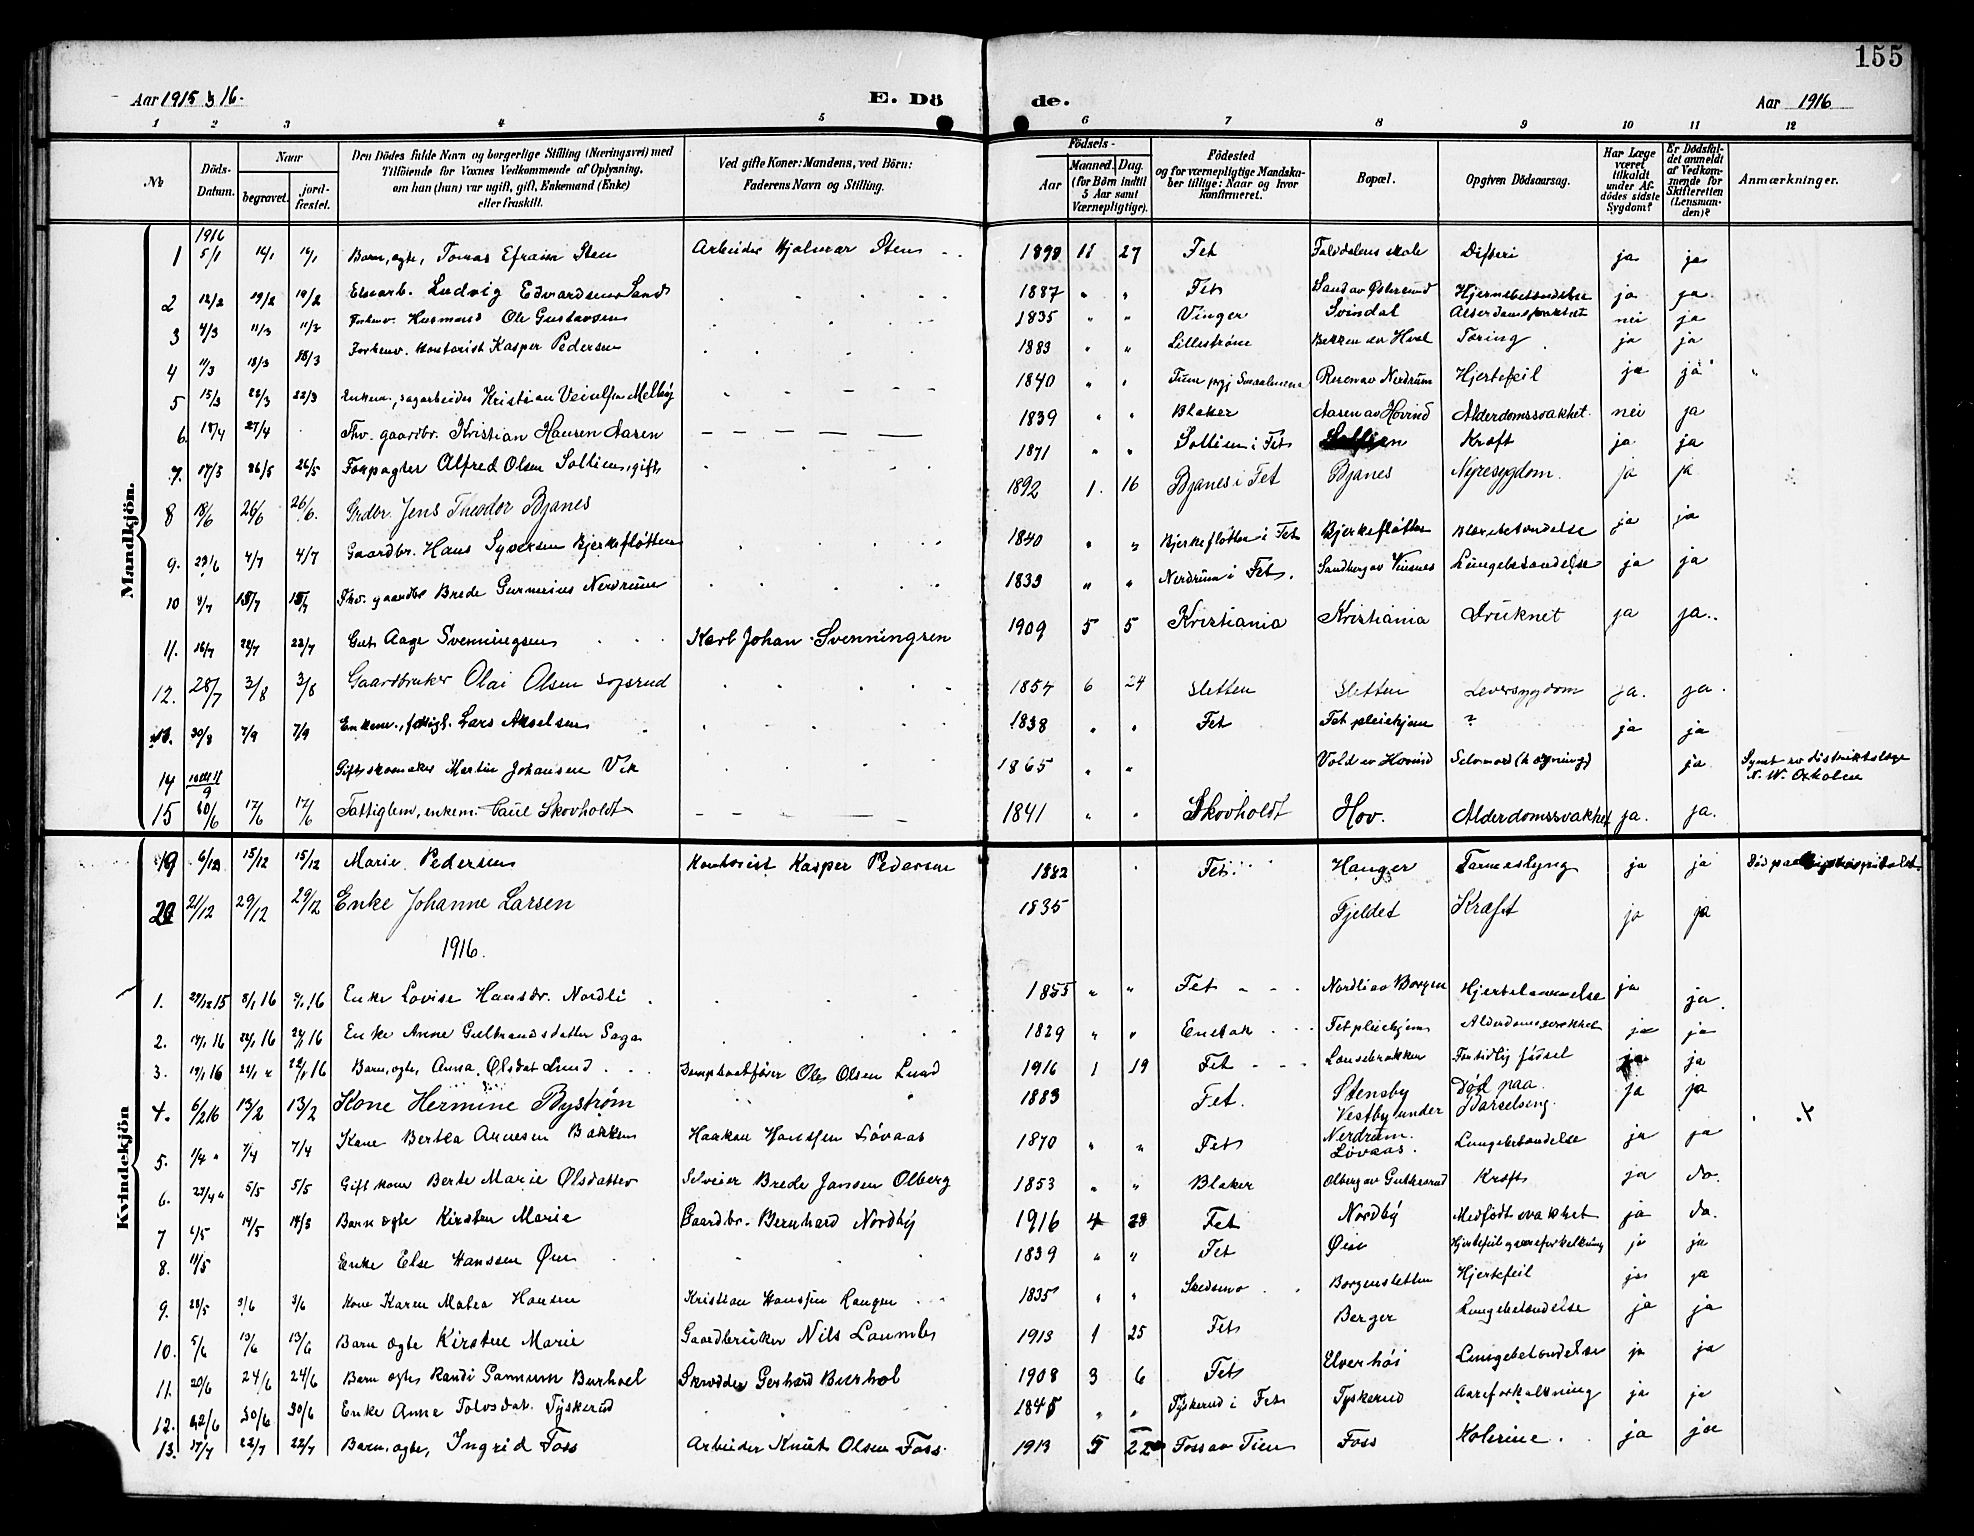 155
Aar 1915 & 16. E. Dö de. Aar 1916
1 2 3 4 5 6 7 8 9 10 11 12
№ Döds-Datum. Naar begravet. jordfæstet. Den Dödes fulde Navn og borgerlige Stilling (Næringsvei) med Tilföiende for Voxnes Vedkommende af Oplysning, om han (hun) var ugift, gift, Enkemand (Enke) eller fraskilt. Ved gifte Koner: Mandens, ved Börn: Faderens Navn og Stilling. Födsels- Aar Maaned. Dag. (for Börn indtil 5 Aar samt Værnepligtige). Födested og for værnepligtige Mandskaber tillige: Naar og hvor konfirmeret. Bopæl. Opgiven Dödsaarsag. Har Læge været tilkaldt under Afdödes sidste Sygdom? Er Dödsfaldet anmeldt af Vedkommende for Skifteretten (Lensmanden)? Anmærkninger.
Mandkjön.
1916
1 5/1 14/1 14/1 Barn, egte, Tomas Efraim Sten Arbeider Hjalmar Sten 1898 11 27 Fet Faldalens skole Difteri ja ja
2 12/2 19/2 19/2 Ludvig Edvardsen Sand 1887 " " Fet Sand av Østersund Hjernebetændelse ja ja
3 4/3 11/3 11/3 Forhenv. Husmand Ole Gustavsen 1835 " " Vinger Svindal Alderdomssvakhet nei ja
4 11/3 18/3 18/3 Forhenv. Kontorist Kasper Pedersen 1883 " " Lillestrøm Bekken av Hval Tæring ja ja
5 15/3 22/3 22/3 Enkem., sagarbeider Kristian Melby 1840 " " Smaalenene Renen av Nerdrum Hjertefeil ja ja
6. 18/4 27/4 Fhv. gaardbr. Kristian Hansen Aasen 1839 " " Blaker Aasen av Hovind Alderdomssvakhet nei ja
7. 17/5 26/5 26/5 Forpagter Alfred Olsen Sollien, gift 1871 " " Sollien i Fet Sollien Kræft ja ja
8 18/6 26/6 26/6. Grdbr. Jens Theodor Bjanes 1892 1. 16 Bjanes i Fet Bjanes Nyresygdom. ja ja
9. 29/6 4/7 4/7 Gaardbr. Hans Syversen Bjerkefløtten 1840 " " Bjerkefløtten i Fet Bjerkefløtten Blærebetændelse ja ja
10 8/7 15/7 15/7 Fhv. gaardbr Brede Gurenius Nerdrum 1833 " " Nerdrum i Fet. Sandberg av Vinsnes Lungebetændelse ja ja
11. 16/7 22/7 22/7 Gut Aage Svenningsen Karl Johan Svenningsen 1909 5 5 Kristiania Kristiania Druknet ja ja.
12. 28/7 3/8 3/8 Gaardbruker Olai Olsen Sogsrud 1854 6 24 Sletten Sletten Leversygdom ja. ja.
13. 30/8 7/9 7/9 Enkem., fattigl. Lars Akselsen 1838 " " Fet Fet pleiehjem ? ja ja
14 9 Gift skomaker Martin Johansen Vik 1865 " " Vold av Hovind Selvmord (hængning) ja Synet av distriktslæge N. W. Oxholm
15 10/6 17/6 17/6 Fattiglem, enkem. Paul Skovholdt 1841 " " Skovholdt Hov. Alderdomssvakhet ja. ja.
Kvindekjön
19 6/12 15/12 15/12 Marie Pedersen Kontorist Kasper Pedersen 1882 Fet Hanger Tarmeslyng ja ja Død paa
20 21/12 29/12 29/12 Enke Johanne Larsen 1835 Fjeldet Kræft ja ja
1916.
1. 29/12 15 8/1 16 9/1 16 Enke Lovise Hansdr. Nordli 1855 " " Fet Nordli av Borgen Hjertelammelse ja ja.
2. 14/1 16 24/1 16 24/1 16 Enke Anne Gulbrandsdatter Saga 1829 " " Enebak Fet pleiehjem Alderdomssvakhet ja ja
3. 19/1 16 22/1 " 22/1 16 Barn, egte, Anna Olsdat Lund Ole Olsen Lund 1916 1 19 Fet Lensebrakken For tidlig fødsel ja ja
4. 6/2 16 13/2 13/2 Kone Hermine Byström 1883 Fet. Stensby Vestby under Nerdrum. Død paa Barselseng. ja ja
5. 1/4 " 7/4 7/4 Kone Bertea Arnesen Bakken Haakon Hanssen Løvaas 1870 " " Fet Løvaas. Lungebetændelse ja ja x
6. 29/4 " 5/5 5/5 Gift kone Berte Marie Olsdatter Selveier Brede Jansen Olberg 1853 " " Blaker Olberg av Guttersrud Kræft ja do.
7 6/5 14/5 14/5 Barn egte Kirsten Marie Gaardbr. Bernhard Nordby 1916 4 28 Fet Nordby Medfødt svakhet ja do.
8. 11/5 Enke Else Hanssen Øien 1839 " " Fet Øien Hjertefeil og aareforkalkning ja ja
9. 28/5 3/6 3/6 Kone Karen Matea Hansen Kristian Hanssen Haugen 1835 " " Skedsmo Borgensletten Hjertefeil ja ja
10. 5/6 13/6 13/6 Barn egte Kirsten Marie Gaardbruker Nils Laumb 1913 1 25 Fet Berger Lungebetændelse ja ja
11. 20/6 24/6 24/6 Barn egte Randi Burhol Skrædder Gerhard Burhol 1908 3 6 Fet Elverhøi Lungebetændelse ja ja
12. 22/6 30/6 30/6 Enke Anne Tolvsdat. Tyskerud 1845 " " Tyskerud i Fet Tyskerud Aareforkalkning ja ja
13. 17/7 22/7 22/7 Barn, egte, Ingrid Foss Arbeider Knut Olsen Foss. 1913 5 22 Foss av Tien Foss Kolerine. ja ja